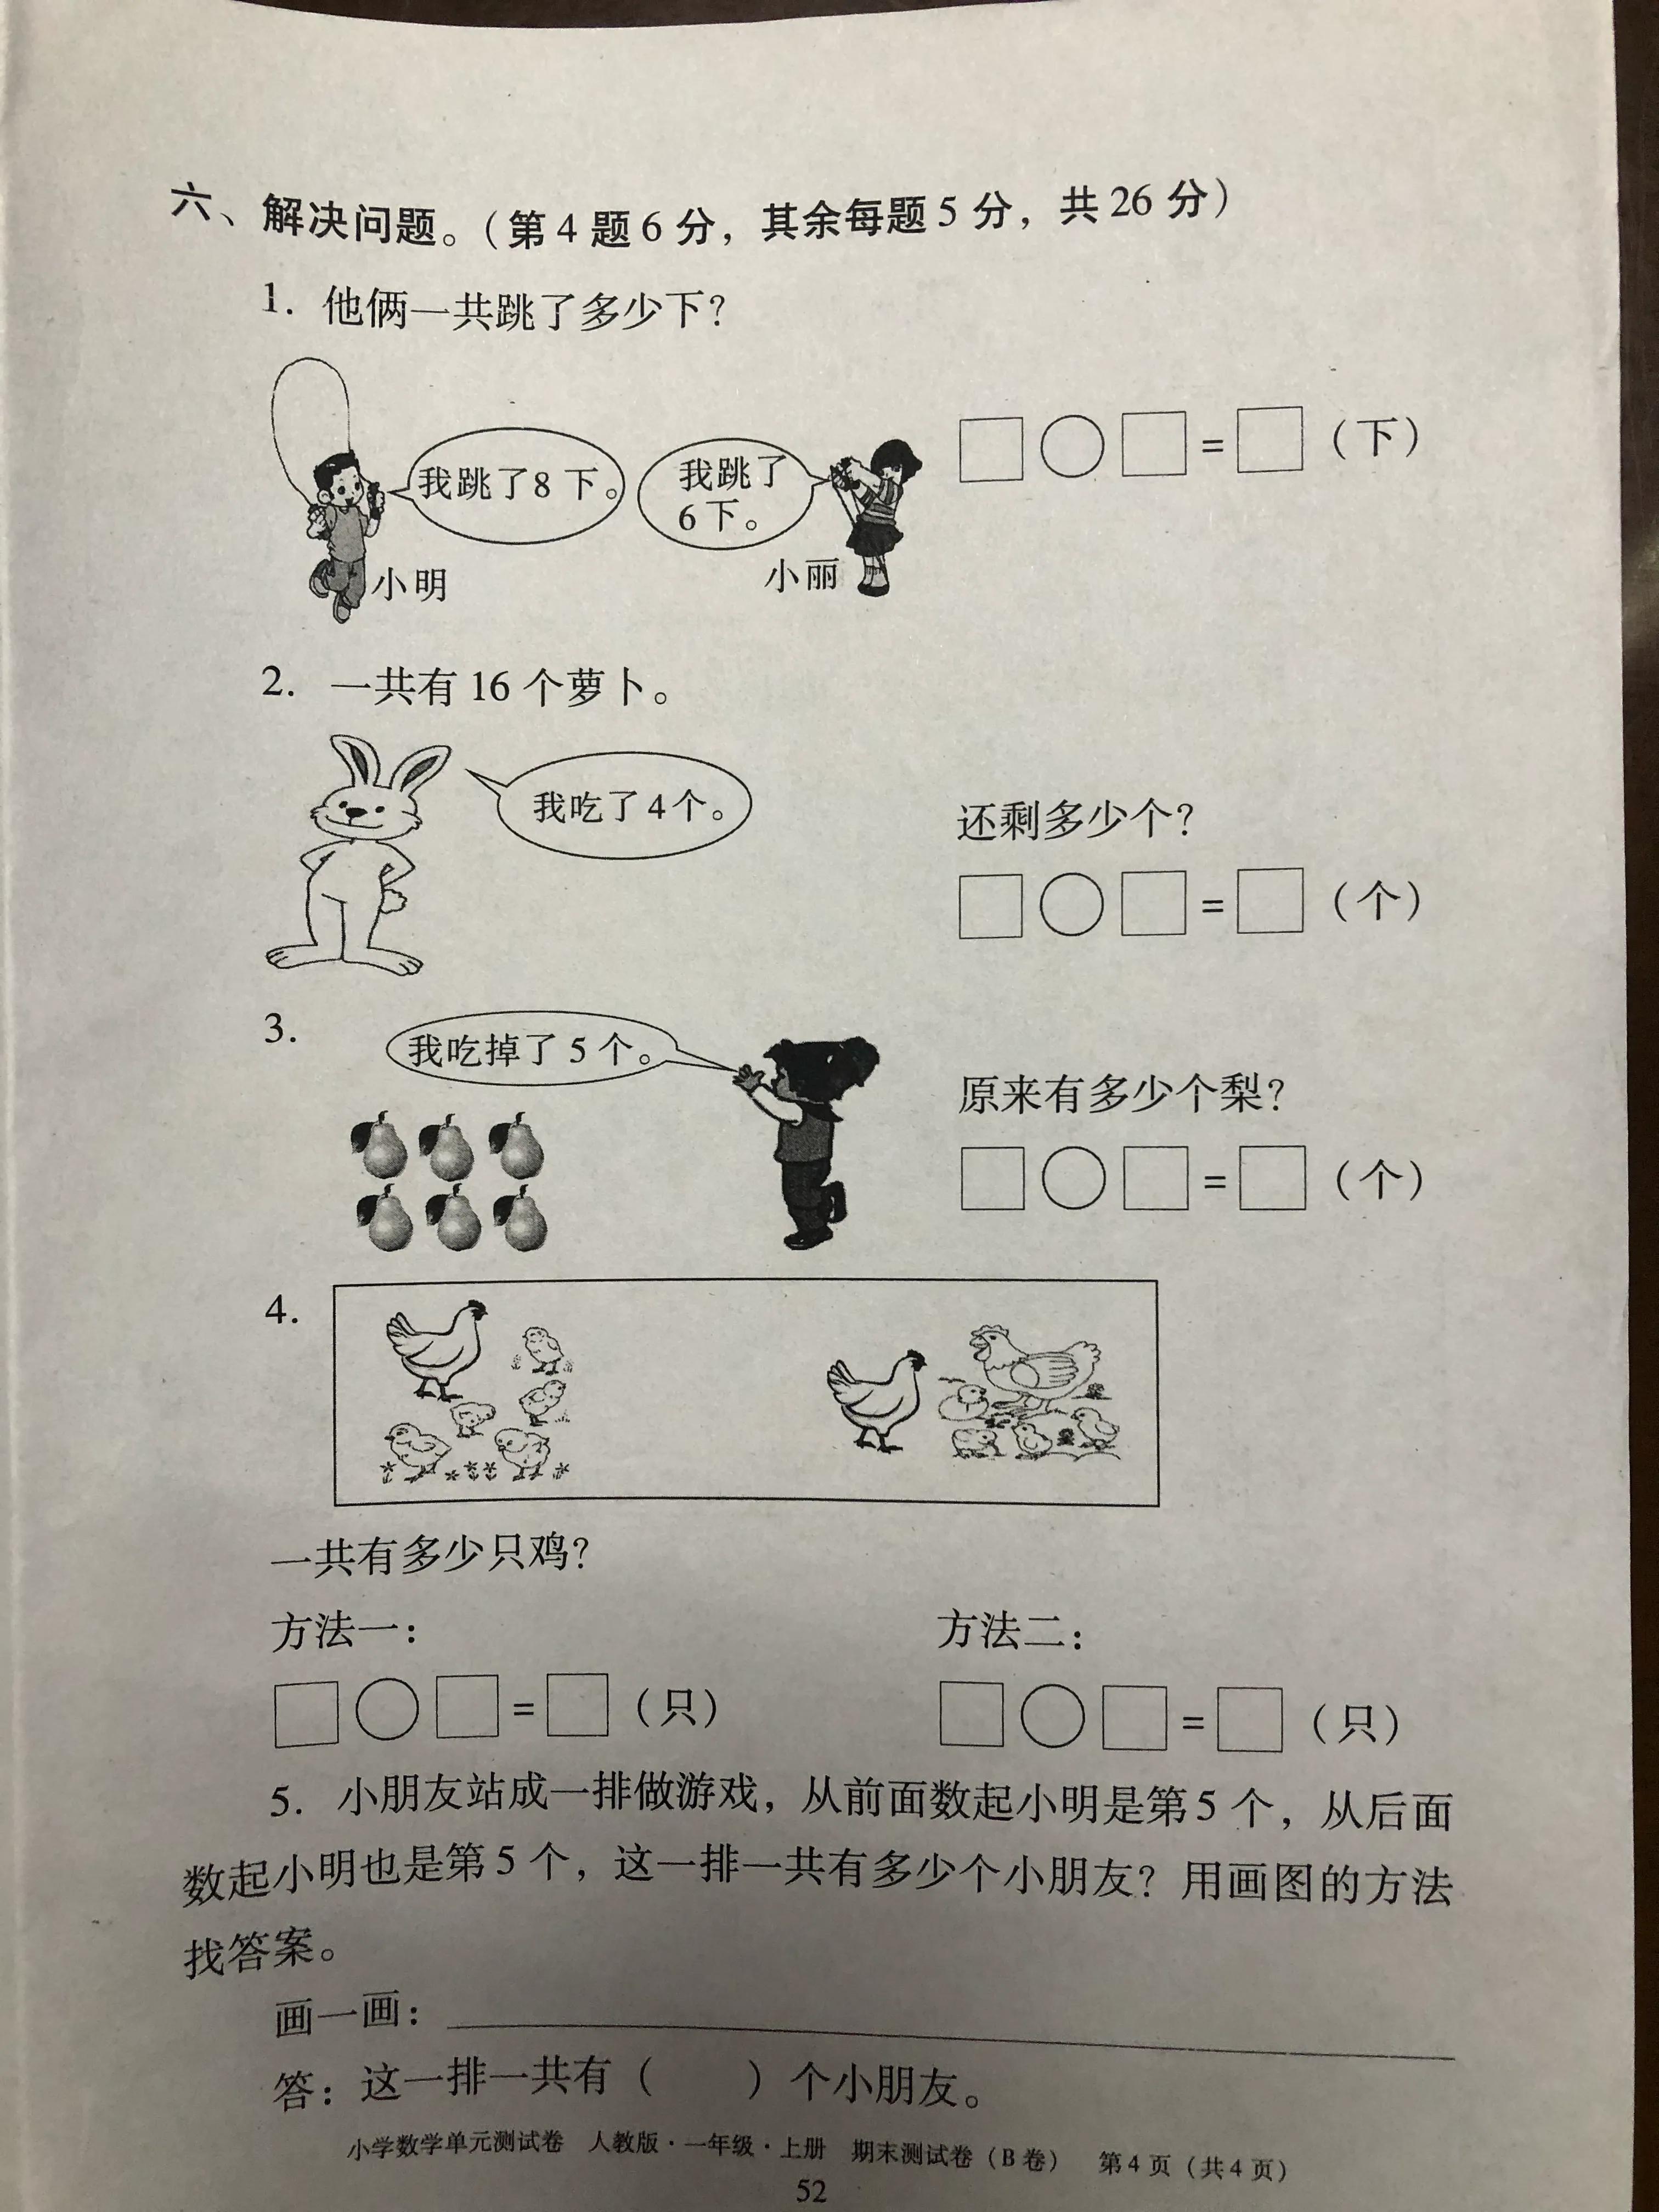 六、解决问题。(第4题6分，其余每题5分，共26分)
1. 他俩一共跳了多少下？
我跳了8下。
我跳了
6下。
小明
小丽
= (下)
2. 一共有16个萝卜。
我吃了4个。
还剩多少个？
= (个)
3.
我吃掉了5个。
原来有多少个梨？
= (个)
4.
一共有多少只鸡？
方法一：
方法二：
= (只)
= (只)
5. 小朋友站成一排做游戏，从前面数起小明是第5个，从后面
数起小明也是第5个，这一排一共有多少个小朋友？用画图的方法
找答案。
画一画：
答：这一排一共有( )个小朋友。
小学数学单元测试卷 人教版·一年级·上册 期末测试卷(B卷) 第4页(共4页)
52